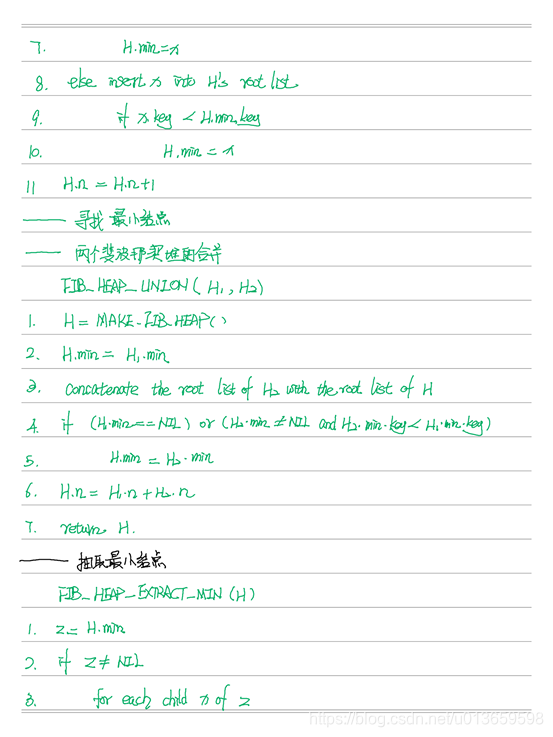 7. H.min=x
8. else insert x into H's root list
9. if x.key < H.min.key
10. H.min = x
11 H.n = H.n+1
—— 寻找最小结点
—— 两个斐波那契堆的合并
FIB_HEAP_UNION(H1, H2)
1. H = MAKE_FIB_HEAP()
2. H.min = H1.min
3. concatenate the root list of H2 with the root list of H
4. if (H1.min==NIL) or (H2.min≠NIL and H2.min.key<H1.min.key)
5. H.min = H2.min
6. H.n = H1.n+H2.n
7. return H.
—— 抽取最小结点
FIB_HEAP_EXTRACT_MIN(H)
1. z= H.min
2. if z≠NIL
3. for each child x of z
https://blog.csdn.net/u013659598